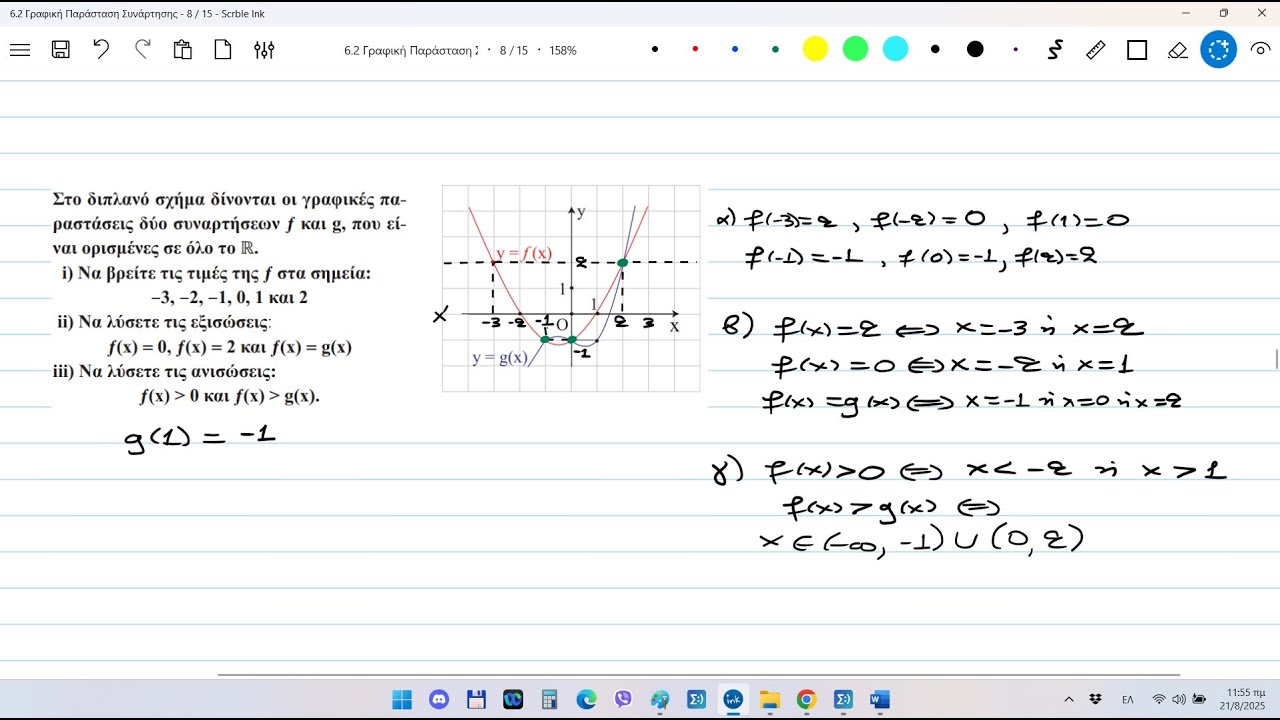 6.2 Γραφική Παράσταση Συνάρτησης - 8 / 15 - Scrble Ink
6.2 Γραφική Παράσταση Σ • 8 / 15 • 158%
Στο διπλανό σχήμα δίνονται οι γραφικές πα-
ραστάσεις δύο συναρτήσεων f και g, που εί-
ναι ορισμένες σε όλο το ℝ.
i) Να βρείτε τις τιμές της f στα σημεία:
−3, −2, −1, 0, 1 και 2
ii) Να λύσετε τις εξισώσεις:
f(x) = 0, f(x) = 2 και f(x) = g(x)
iii) Να λύσετε τις ανισώσεις:
f(x) > 0 και f(x) > g(x).
g(1) = -1
y
y = f(x)
2
1
1
x' -3 -2 -1 O 2 3 x
-1
y = g(x)
α) f(-3)=2 , f(-2)=0 , f(1)=0
f(-1)=-1 , f(0)=-1, f(2)=2
β) f(x)=2 ⟺ x=-3 ή x=2
f(x)=0 ⟺ x=-2 ή x=1
f(x)=g(x) ⟺ x=-1 ή x=0 ή x=2
γ) f(x)>0 ⟺ x<-2 ή x>1
f(x)>g(x) ⟺
x ∈ (-∞, -1) ∪ (0, 2)
ink
ΕΛ
11:55 πμ
21/8/2025